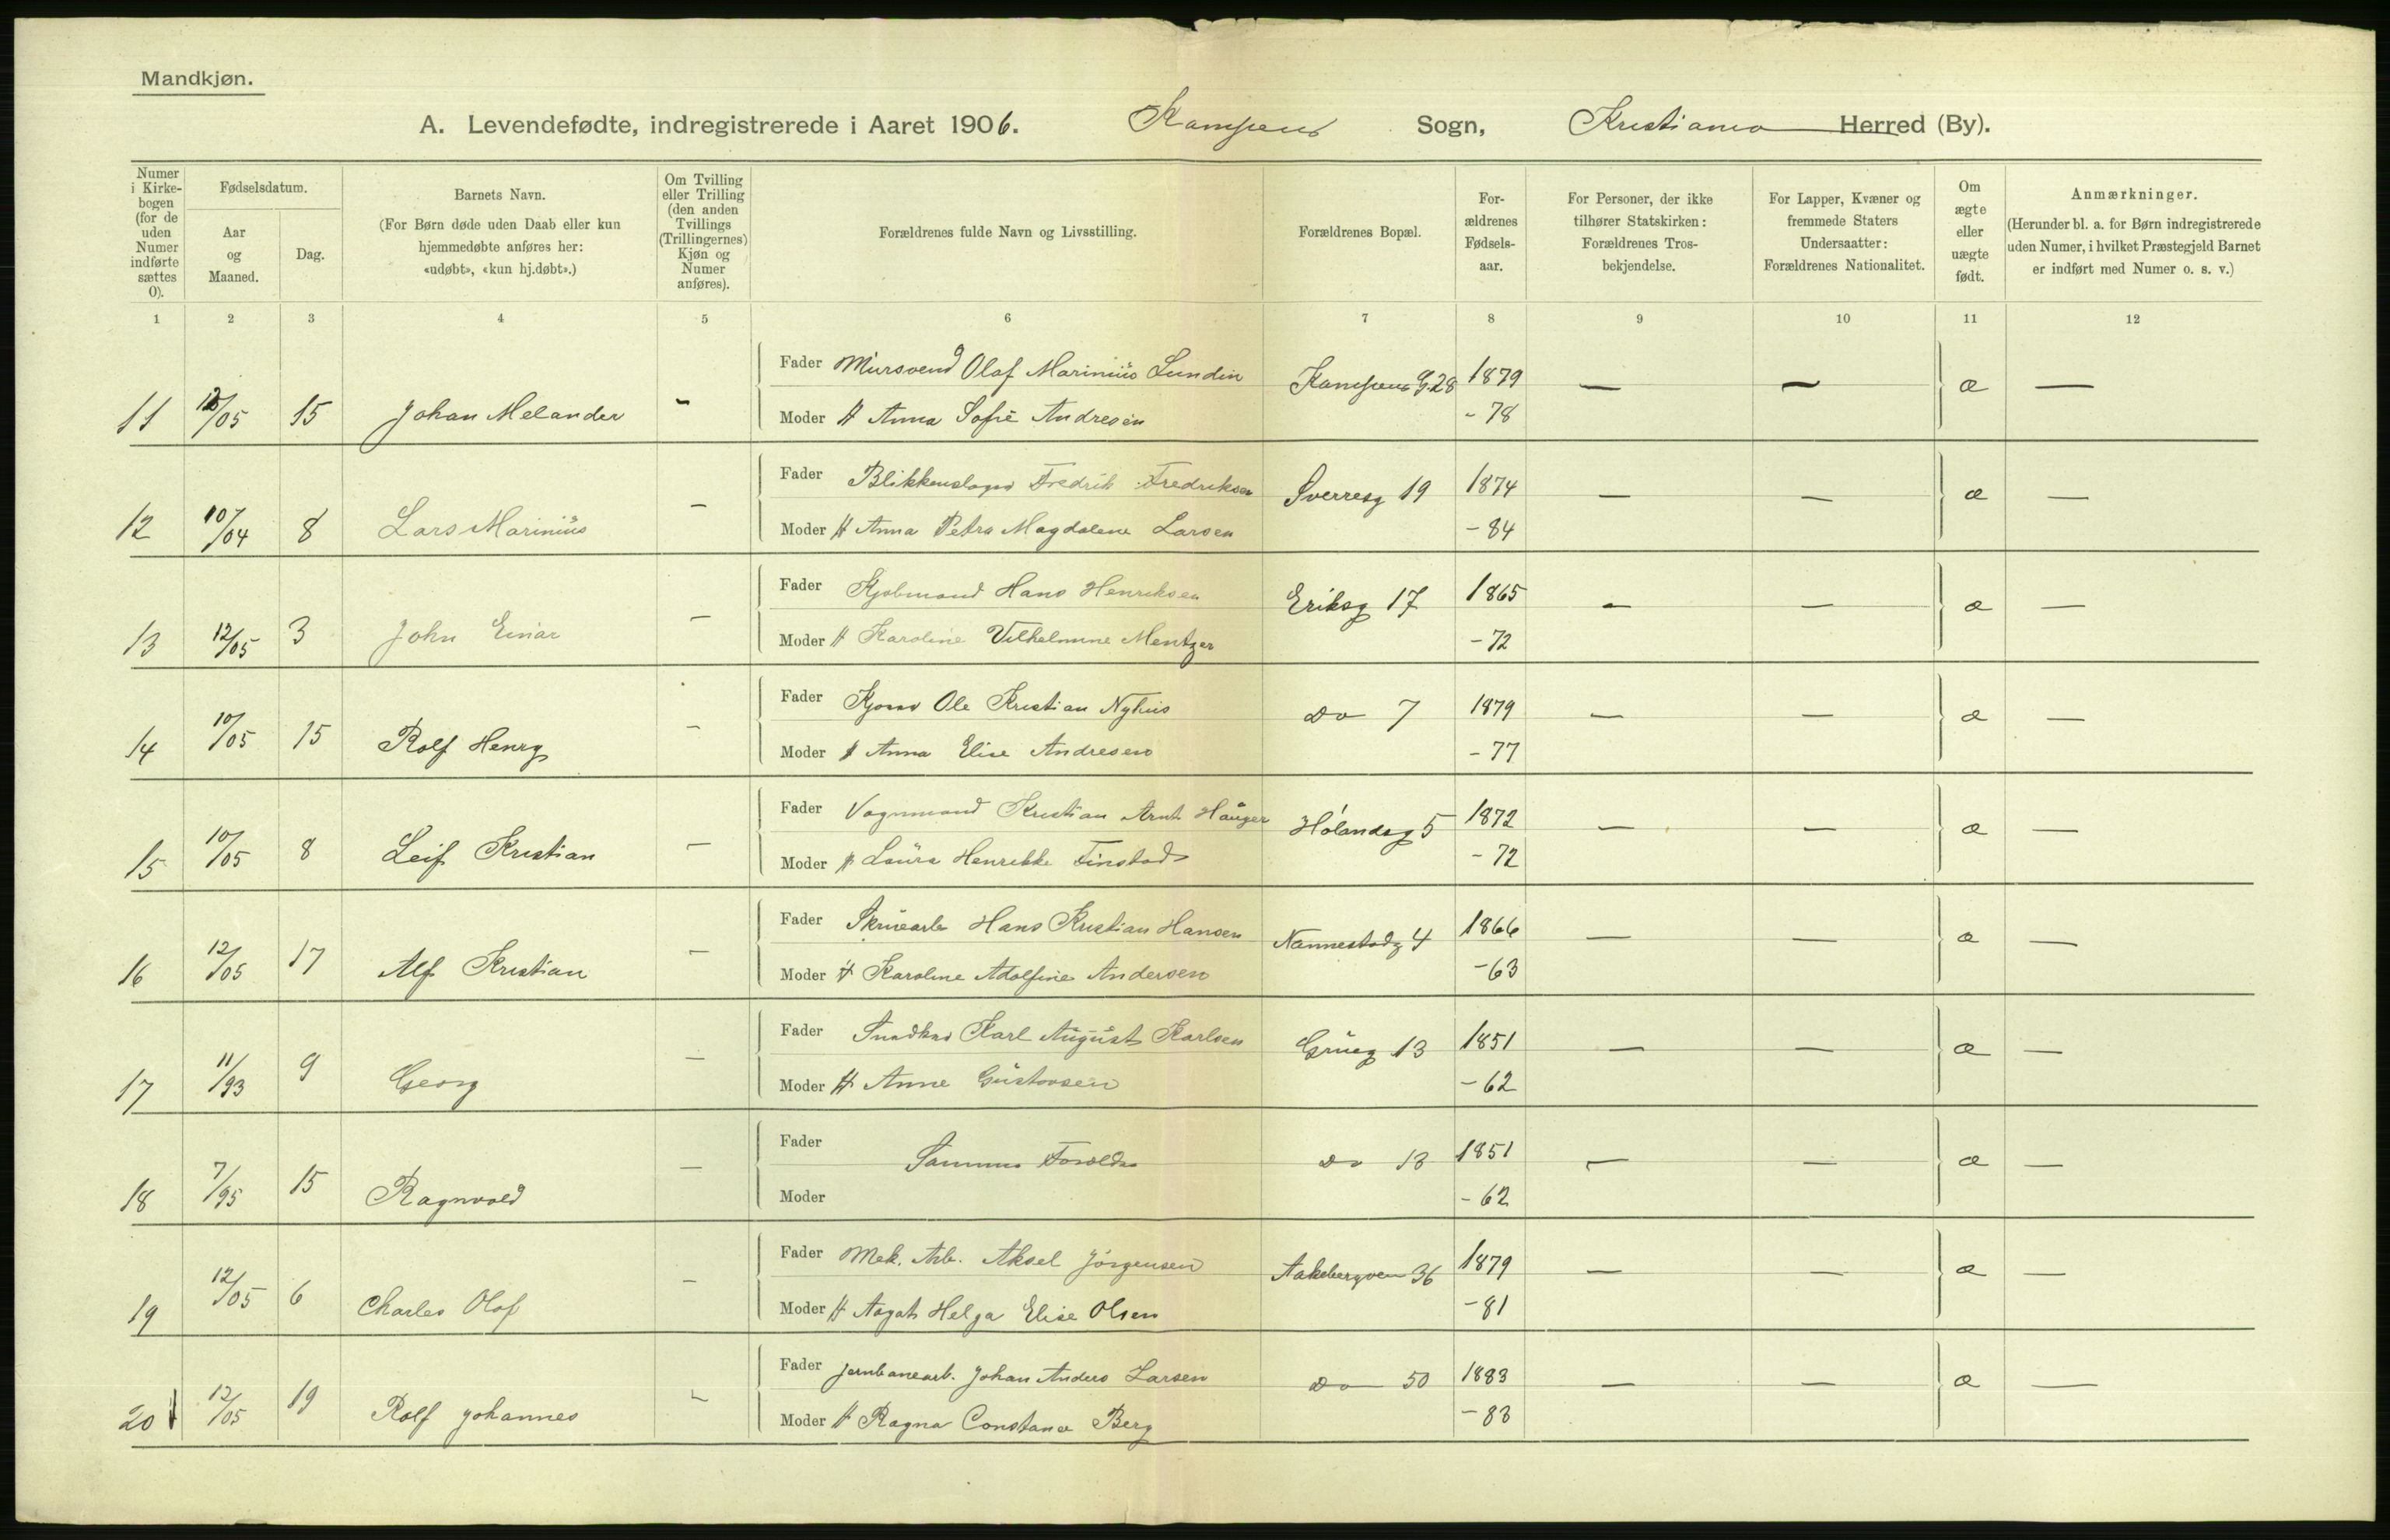 Mandkjøn.
A. Levendefødte, indregistrerede i Aaret 1906. Kampens Sogn, Kristiania Herred (By).
Numer i Kirke-bogen (for de uden Numer indførte sættes 0).
Fødselsdatum.
Aar og Maaned.
Dag.
Barnets Navn.
(For Børn døde uden Daab eller kun hjemmedøbte anføres her: «udøbt», «kun hj.døbt».)
Om Tvilling eller Trilling (den anden Tvillings (Trillingernes) Kjøn og Numer anføres).
Forældrenes fulde Navn og Livsstilling.
Forældrenes Bopæl.
For-ældrenes Fødsels-aar.
For Personer, der ikke tilhører Statskirken: Forældrenes Tros-bekjendelse.
For Lapper, Kvæner og fremmede Staters Undersaatter: Forældrenes Nationalitet.
Om ægte eller uægte født.
Anmærkninger.
(Herunder bl. a. for Børn indregistrerede uden Numer, i hvilket Præstegjeld Barnet er indført med Numer o. s. v.)
1 2 3 4 5 6 7 8 9 10 11 12
Fader Mursvend Olaf Marinius Lundin Kampens G. 28 1879 — — æ —
11 12/05 15 Johan Melander - Moder H Anna Sofie Andresen - 78
Fader Blikkenslager Fredrik Fredriksen Sverresg 19 1874 — — æ —
12 10/04 8 Lars Marinius — Moder H Anna Petra Magdalene Larsen - 84
Fader Kjøbmand Hans Henriksen Eriksg 17 1865 — — æ —
13 12/05 3 John Einar — Moder H Karoline Vilhelmine Mentzer - 72
Fader Ole Kristian Nyhus Do 7 1879 — — æ —
14 10/05 15 Rolf Henry — Moder H Anna Elise Andresen - 77
Fader Vognmand Kristian Arnt Hauger Hølandsg 5 1872 — — æ —
15 10/05 8 Leif Kristian — Moder H Laura Henrikke Finstad - 72
Fader Hans Kristian Hansen Nannestadg 4 1866 — — æ —
16 12/05 17 Alf Kristian — Moder H Karoline Adolfine Andersen - 63
Fader Karl August Karlsen Grueg 13 1851 — — æ —
17 11/93 9 Georg — Moder H Anne Gustavsen - 62
Fader Samme Foreldre Do 13 1851 — — æ —
18 7/95 15 Ragnvald — Moder - 62
Fader Mek. Arb. Aksel Jörgensen Aakebergveien 36 1879 — — æ —
19 12/05 6 Charles Olaf — Moder H Aagot Helga Elise Olsen - 81
Fader Jernbanearb. Johan Anders Larsen Do 50 1883 — — æ —
20 12/05 19 Rolf Johannes — Moder H Ragna Constance Berg - 83